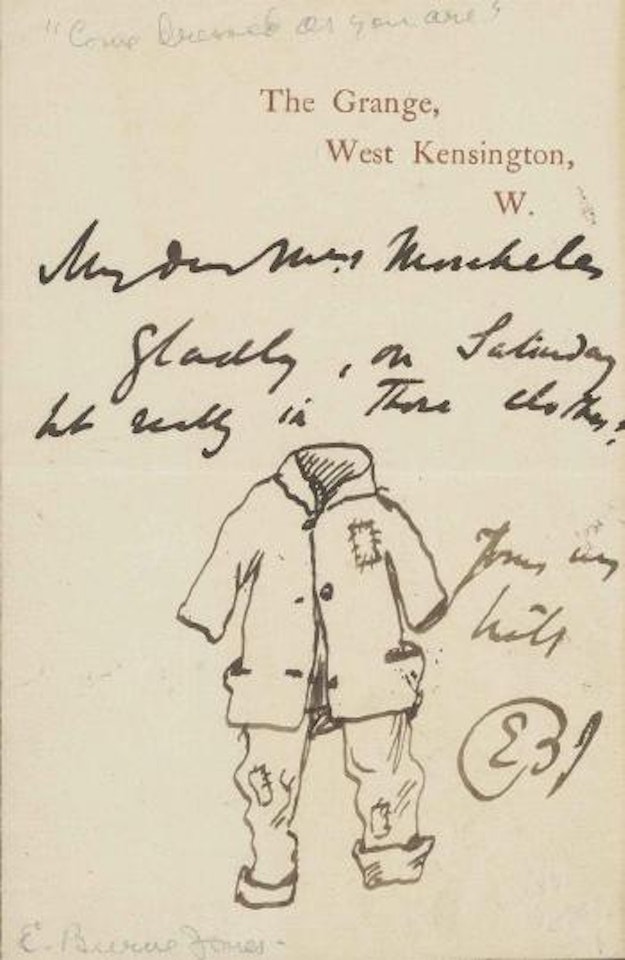 "Come dressed as you are"
The Grange,
West Kensington,
W.
My dear Mrs Moscheles
Gladly, on Saturday
but really in those clothes?
Yours
EBJ
E. Burne Jones -